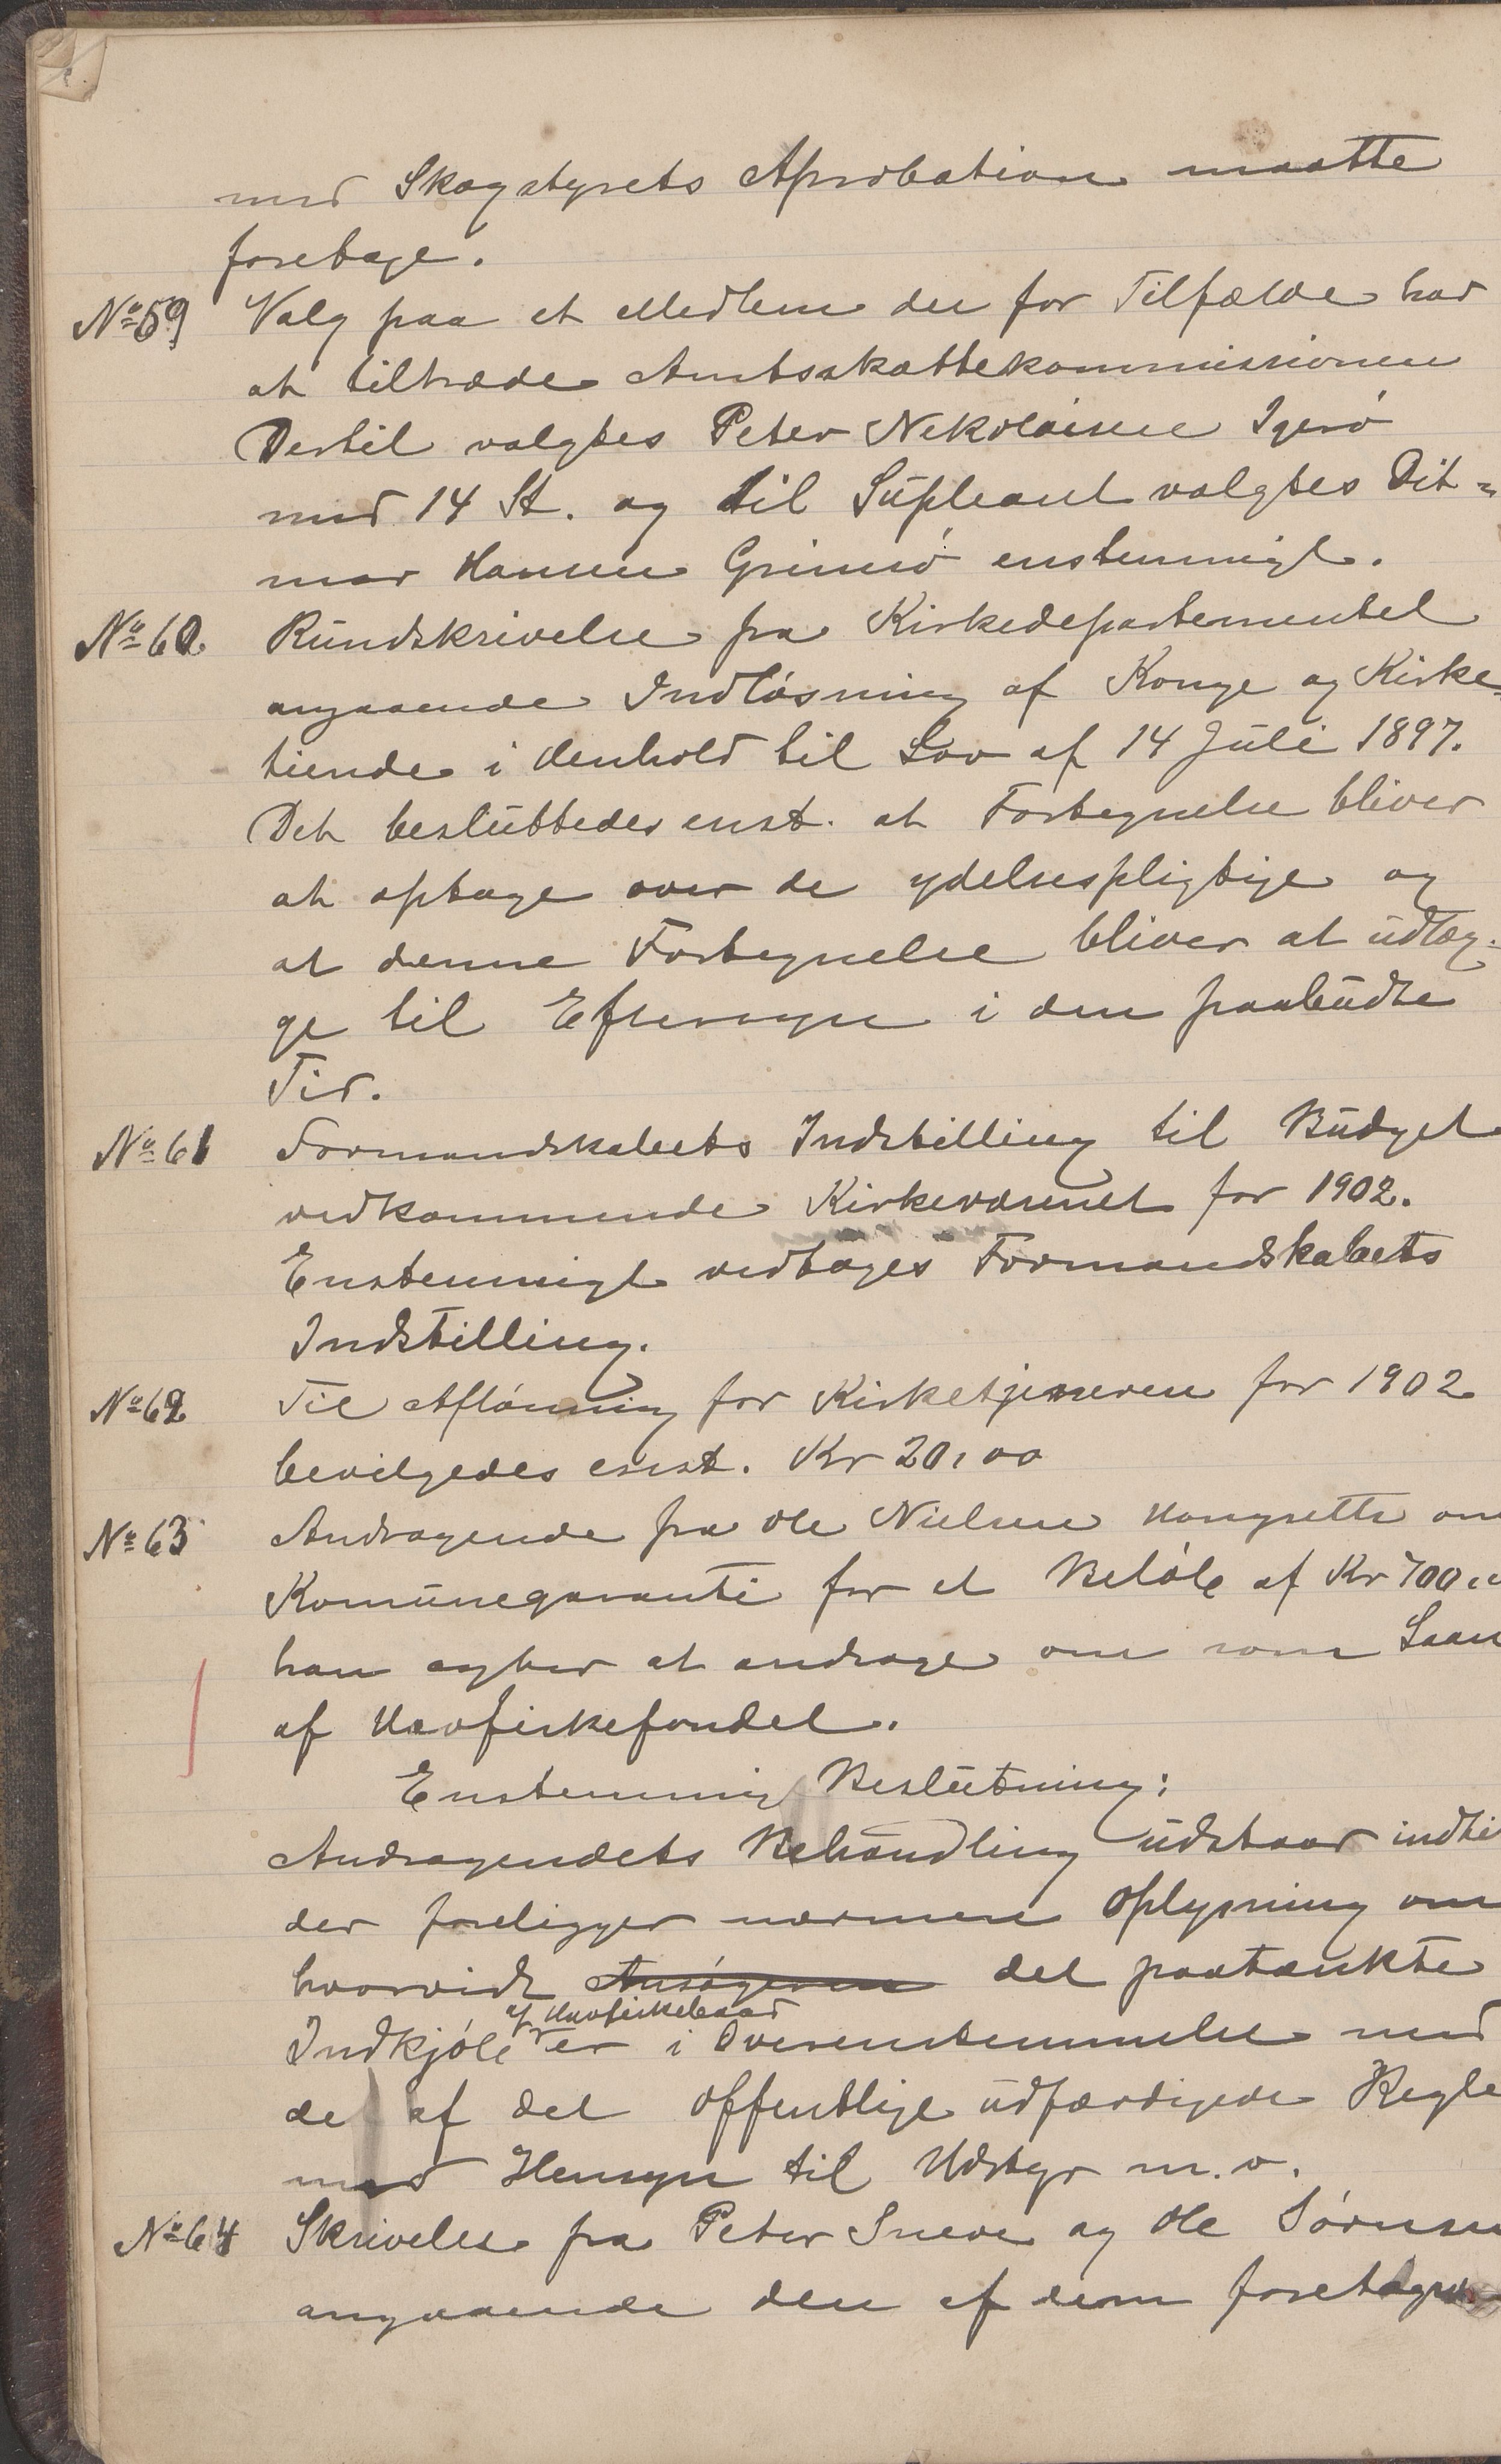 med Skogstyrets Aprobation maatte
foretage.
No 59 Valg paa et Medlem der for Tilfælde har
at tiltræde Amtsskattekommissionen
Dertil valgtes Peter Nekolaisen Igerø
med 14 St. og til Supleant valgtes Dit=
mar Hansen Grimsø enstemmigt.
No 60 Rundskrivelse fra Kirkedepartementet
angaaende Indløsning af Konge og Kirke=
tiende i Henhold til Lov af 14 Juli 1897.
Det besluttedes enst. at Fortegnelse bliver
at optage over de ydelsespligtige og
at denne Fortegnelse bliver at udlæg=
ge til Eftersyn i den paabudte
Tid.
No 61 Formandskabets Indstilling til Budget
vedkommende Kirkevæsenet for 1902.
Enstemmigt vedtoges Formandskabets
Indstilling.
No 62 Til Aflønning for Kirketjeneren for 1902
bevilgedes enst. Kr 20,00
No 63 Andragende fra Ole Nielsen om
Komunegaranti for et Beløb af Kr 700,00
han agter at andrage om som Laan
af Havfiskefondet.
Enstemmig Beslutning:
Andragendets Behandling udstaar indti
der foreligger nærmere Oplysning om
hvorvidt Ansøgeren det paatænkte
af Havfiskebaad
Indkjøb er i Overenstemmelse med
de af det offentlige udfærdigede Regle
med Hensyn til Udstyr m.v.
No 64 Skrivelse fra Peter Sneve og Ole Sørensen
angaaende den af dem foretagne